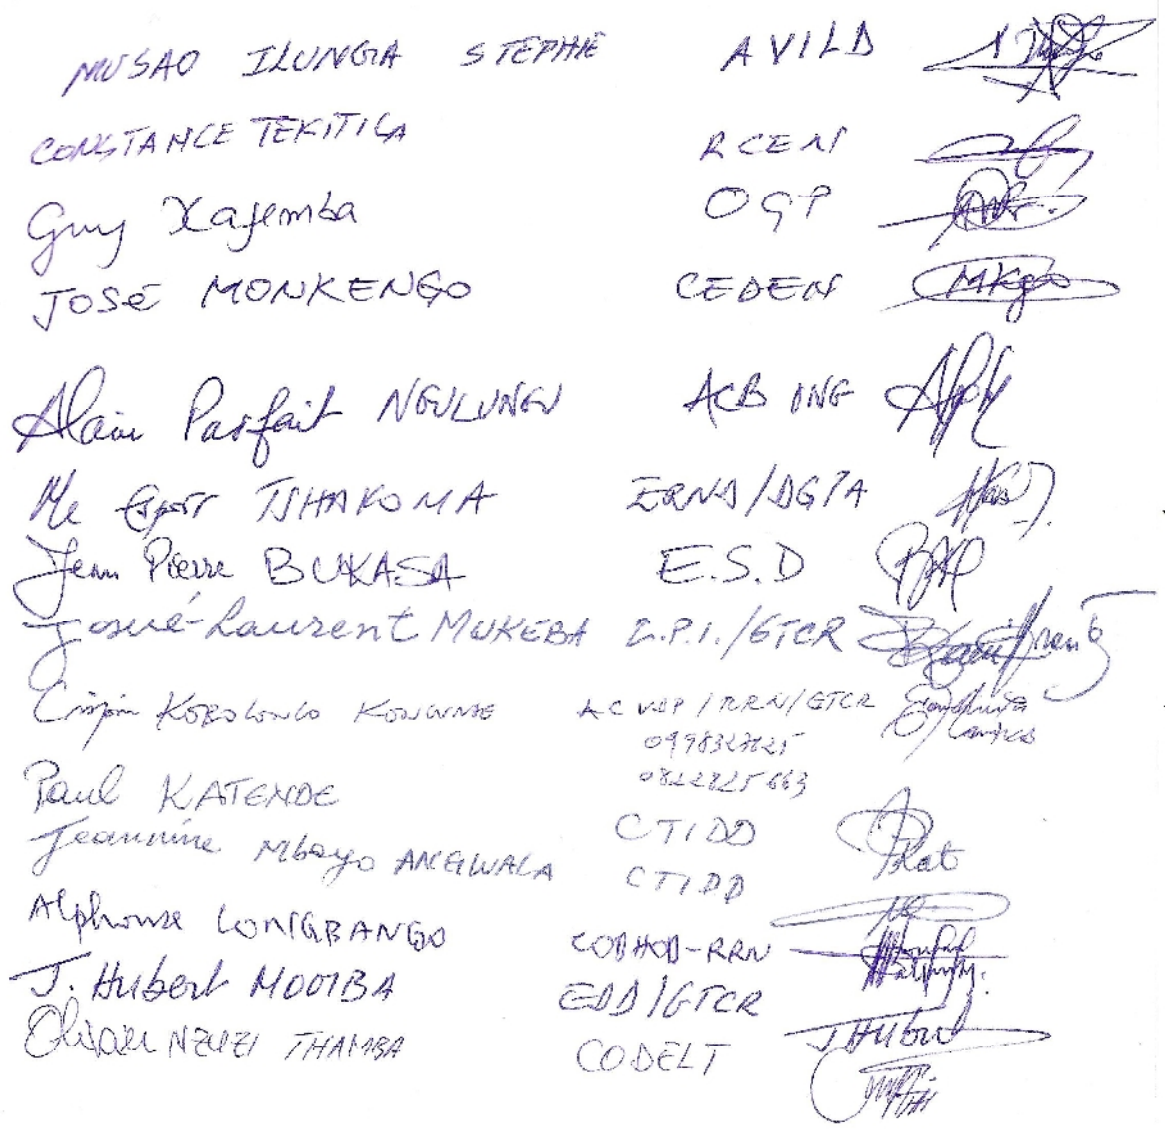 MUSAO ILUNGA STEPHIE AVILD
CONSTANCE TEKITILA RCEN
Guy Kajemba OGP
JOSÉ MONKENGO CEDEN MKgo
Alain Parfait NGULUNGU ACB ONG
Me Espoir TSHAKOMA ERND/DGPA
Jean Pierre BUKASA E.S.D
Josué-Laurent MUKEBA L.P.I./GTCR
Crispin KOBOLONGO KONGUNDE /RRN/GTCR
Paul KATENDE CTIDD
Jeannine Mbayo ANGWALA CTIDD
Alphonse LONGBANGO COBHOD-RRN
J. Hubert MOOMBA EDD/GTCR JHubert
Olivier NZUZI THAMBA CODELT